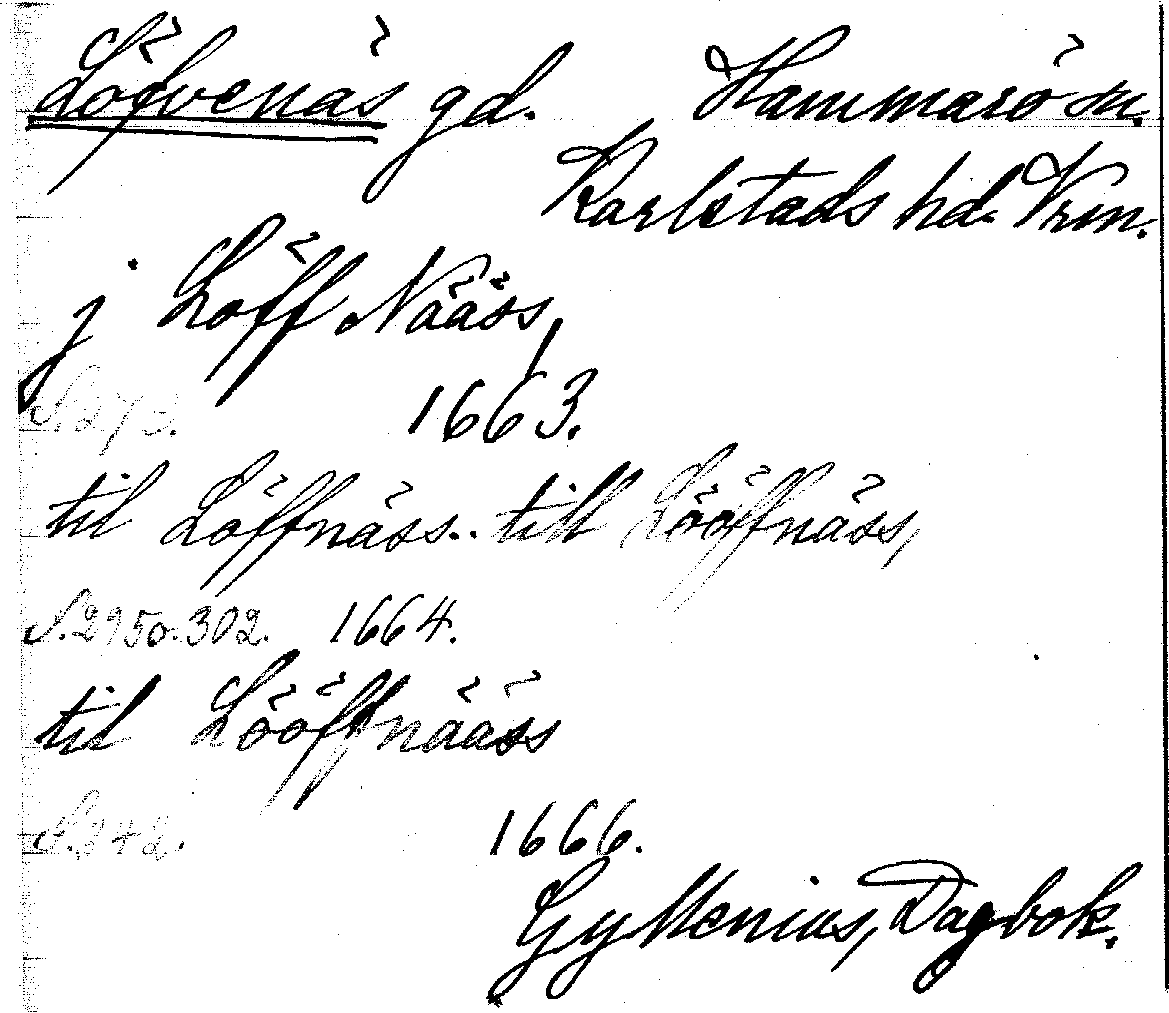 Löfvenäs gd. Hammarö sn.
Karlstads hd. Vrm.
j Löff Nääss,
S. 273. 1663.
til Löffnäss.. till Lööffnäss,
S. 295 o. 302. 1664.
til Lööffnääss
S. 342. 1666.
Gyllenius, Dagbok.